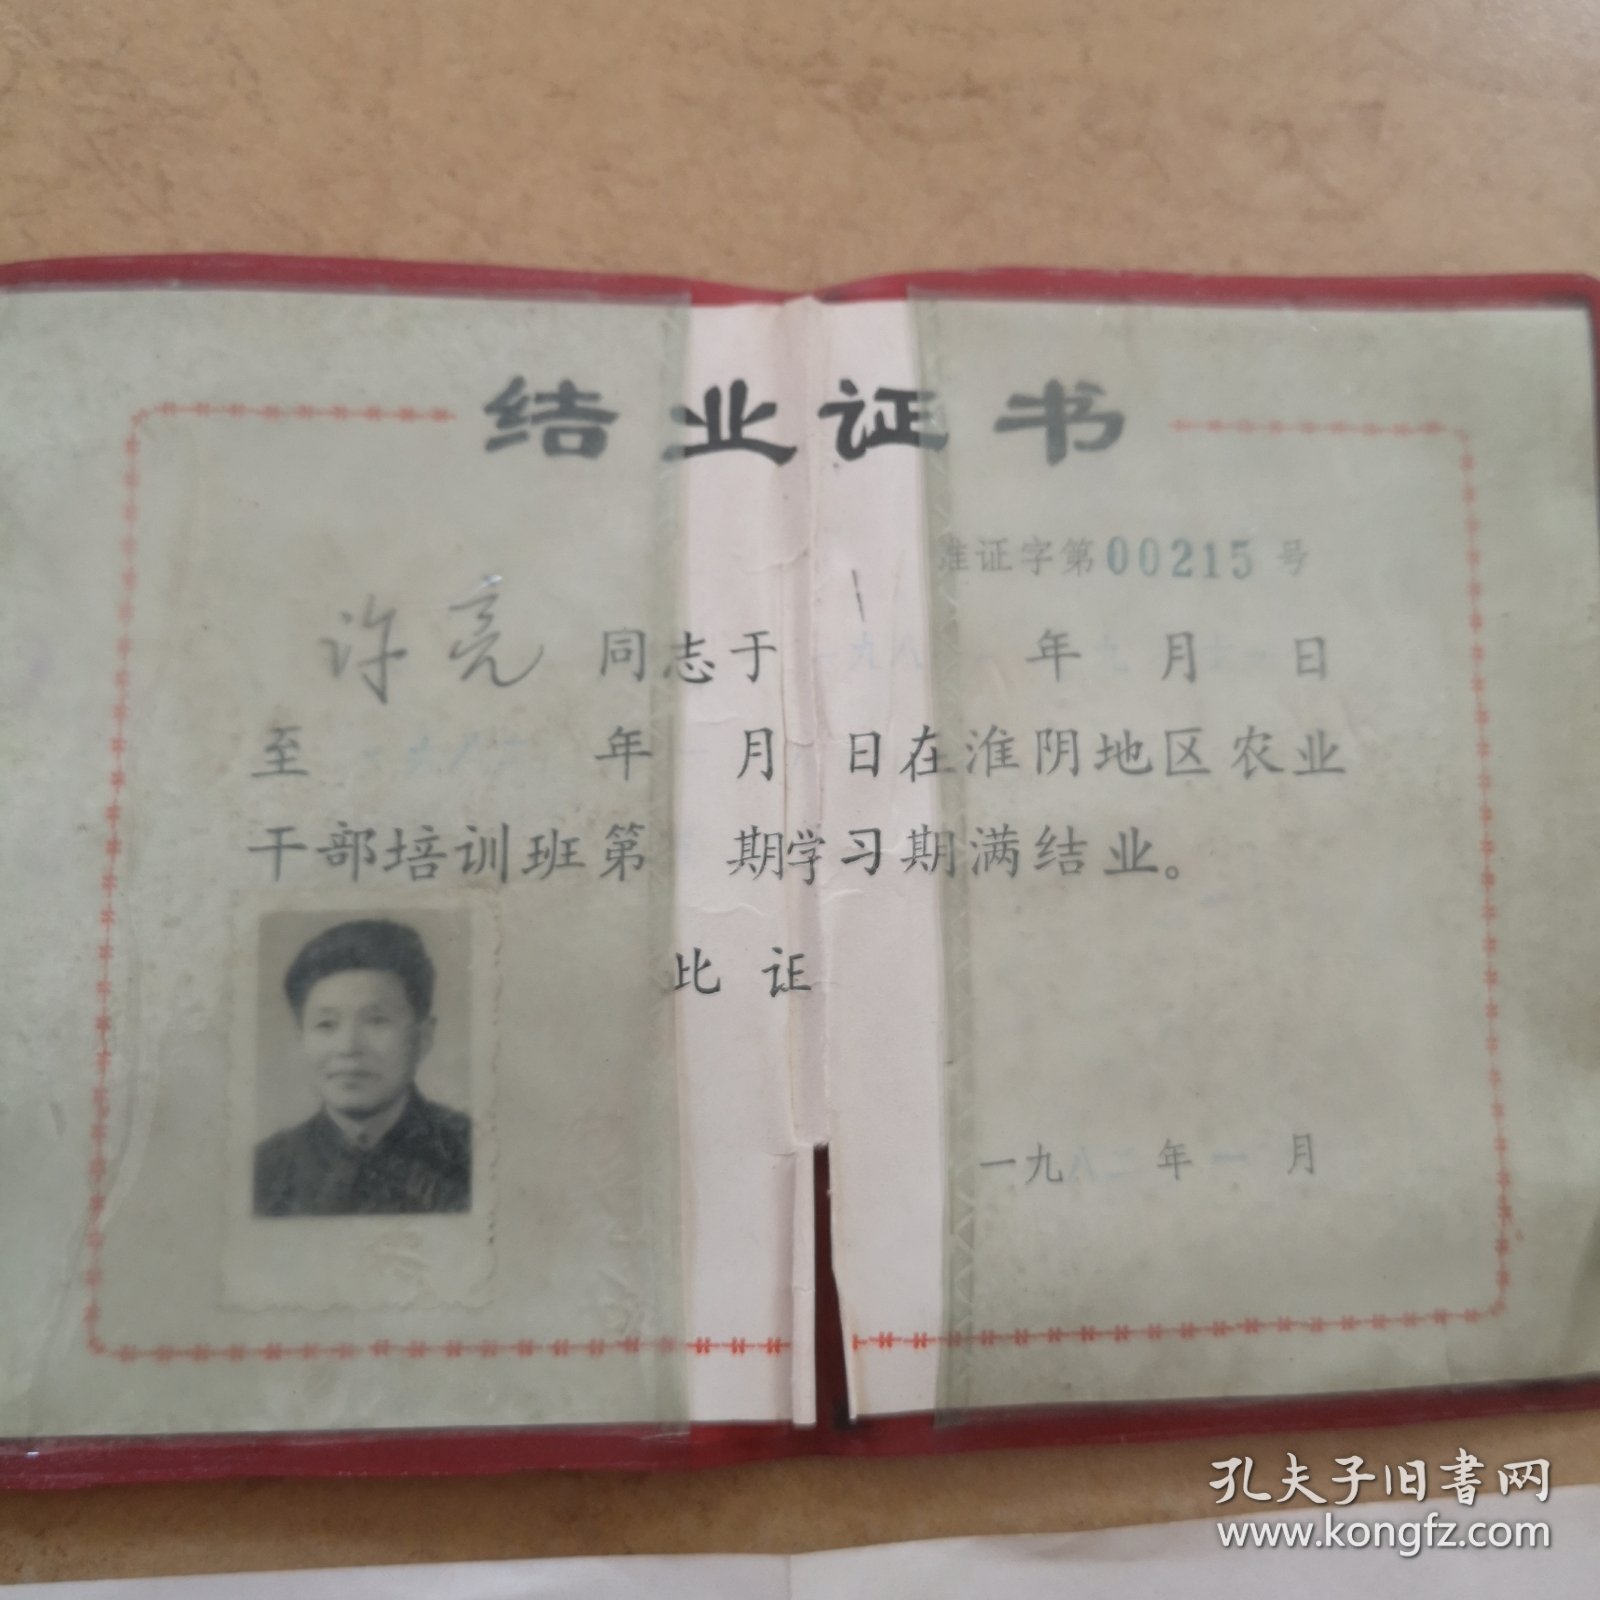 结业证书
淮证字第00215号
许亮 同志于一九八一年 月 日
至一九八二年 月 日在淮阴地区农业
干部培训班第 期学习期满结业。
此证
一九八二年一月
孔夫子旧书网
www.kongfz.com